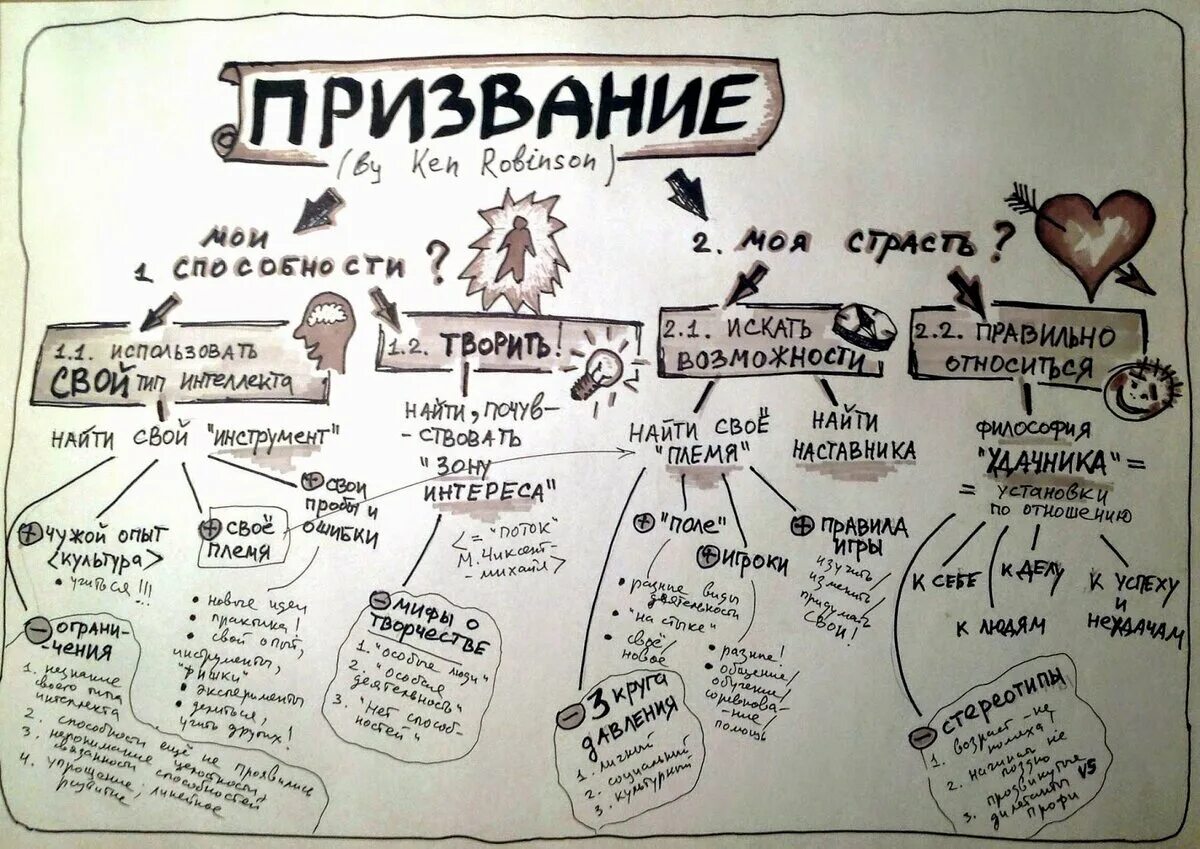 ПРИЗВАНИЕ
(By Ken Robinson)
МОИ
1. СПОСОБНОСТИ ?
1.1. ИСПОЛЬЗОВАТЬ
СВОЙ ТИП ИНТЕЛЛЕКТА
НАЙТИ СВОЙ "ИНСТРУМЕНТ"
+ ЧУЖОЙ ОПЫТ
<КУЛЬТУРА>
• учиться!!!
+ СВОЁ
ПЛЕМЯ
+ СВОИ
ПРОБЫ И
ОШИБКИ
• новые идеи
• практика!
• свой опыт,
инструменты,
"фишки"
• эксперименты
• делиться,
учить других!
- ОГРАНИ-
ЧЕНИЯ
1. незнание
своего типа
интеллекта
2. способности ещё не проявились
3. непонимание целостности,
связанности способностей
4. упрощение, линейное
развитие
1.2. ТВОРИТЬ!
НАЙТИ, ПОЧУВ-
-СТВОВАТЬ
"ЗОНУ
ИНТЕРЕСА"
<="ПОТОК"
М. Чиксент-
-михайл>
- МИФЫ О
ТВОРЧЕСТВЕ
1. "особые люди"
2. "особая
деятельность"
3. "нет способ-
ностей"
2. МОЯ СТРАСТЬ ?
2.1. ИСКАТЬ
ВОЗМОЖНОСТИ
НАЙТИ СВОЁ
"ПЛЕМЯ"
НАЙТИ
НАСТАВНИКА
+ "ПОЛЕ"
• разные виды
деятельности
• "на стыке"
• своё/
новое
+ ИГРОКИ
• разные!
• общение/
обучение/
соревнова-
-ние/
помощь
+ ПРАВИЛА
ИГРЫ
изучить/
изменить/
придумать
СВОИ!
- 3 КРУГА
ДАВЛЕНИЯ
1. личный
2. социальный
3. культурный
2.2. ПРАВИЛЬНО
ОТНОСИТЬСЯ
ФИЛОСОФИЯ
"УДАЧНИКА" =
= УСТАНОВКИ
ПО ОТНОШЕНИЮ
К СЕБЕ
К ЛЮДЯМ
К ДЕЛУ
К УСПЕХУ
И
НЕУДАЧАМ
- СТЕРЕОТИПЫ
1. возраст - не
помеха!
2. начинать не
поздно
3. продвинутые
дилетанты VS
профи